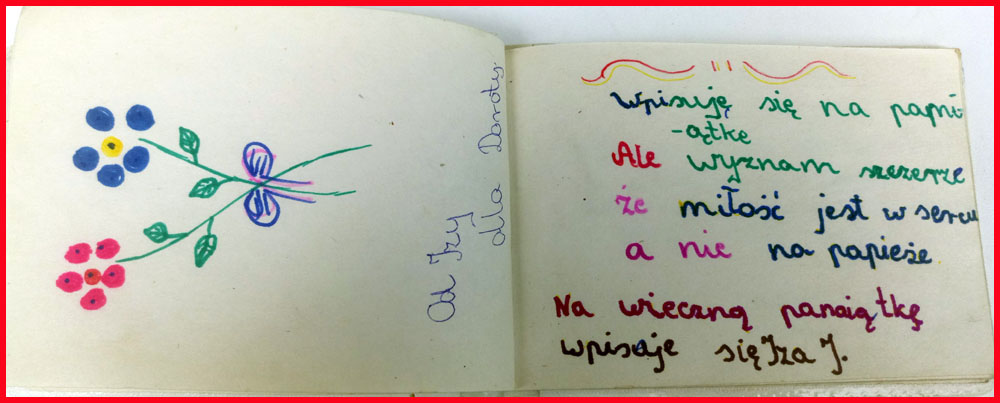 Od Izy
dla Doroty.
Wpisuję się na pami-
-ątkę
Ale wyznam szczerze
że miłość jest w sercu
a nie na papieże
Na wieczną pamiątkę
wpisuje się Iza J.